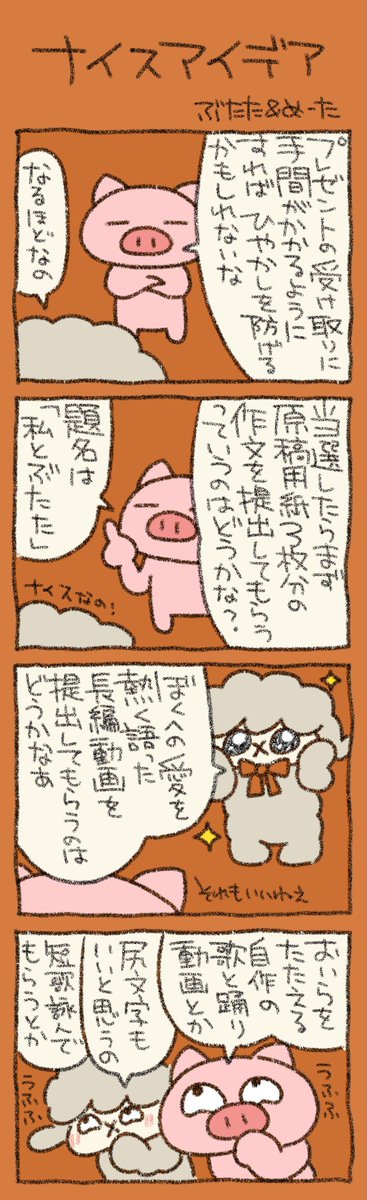 ナイスアイデア
ぶたた&めーた
プレゼントの受け取りに
手間がかかるように
すれば ひやかしを防げる
かもしれないな
なるほどなの
当選したらまず
原稿用紙3枚分の
作文を提出してもらう
っていうのはどうかなっ
題名は
「私とぶたた」
ナイスなの!
ぼくへの愛を
熱く語った
長編動画を
提出してもらうのは
どうかなぁ
それもいいねぇ
おいらを
たたえる
自作の
歌と踊り
動画とか
尻文字も
いいと思うの
短歌詠んで
もらうとか
うふふ
うふふ